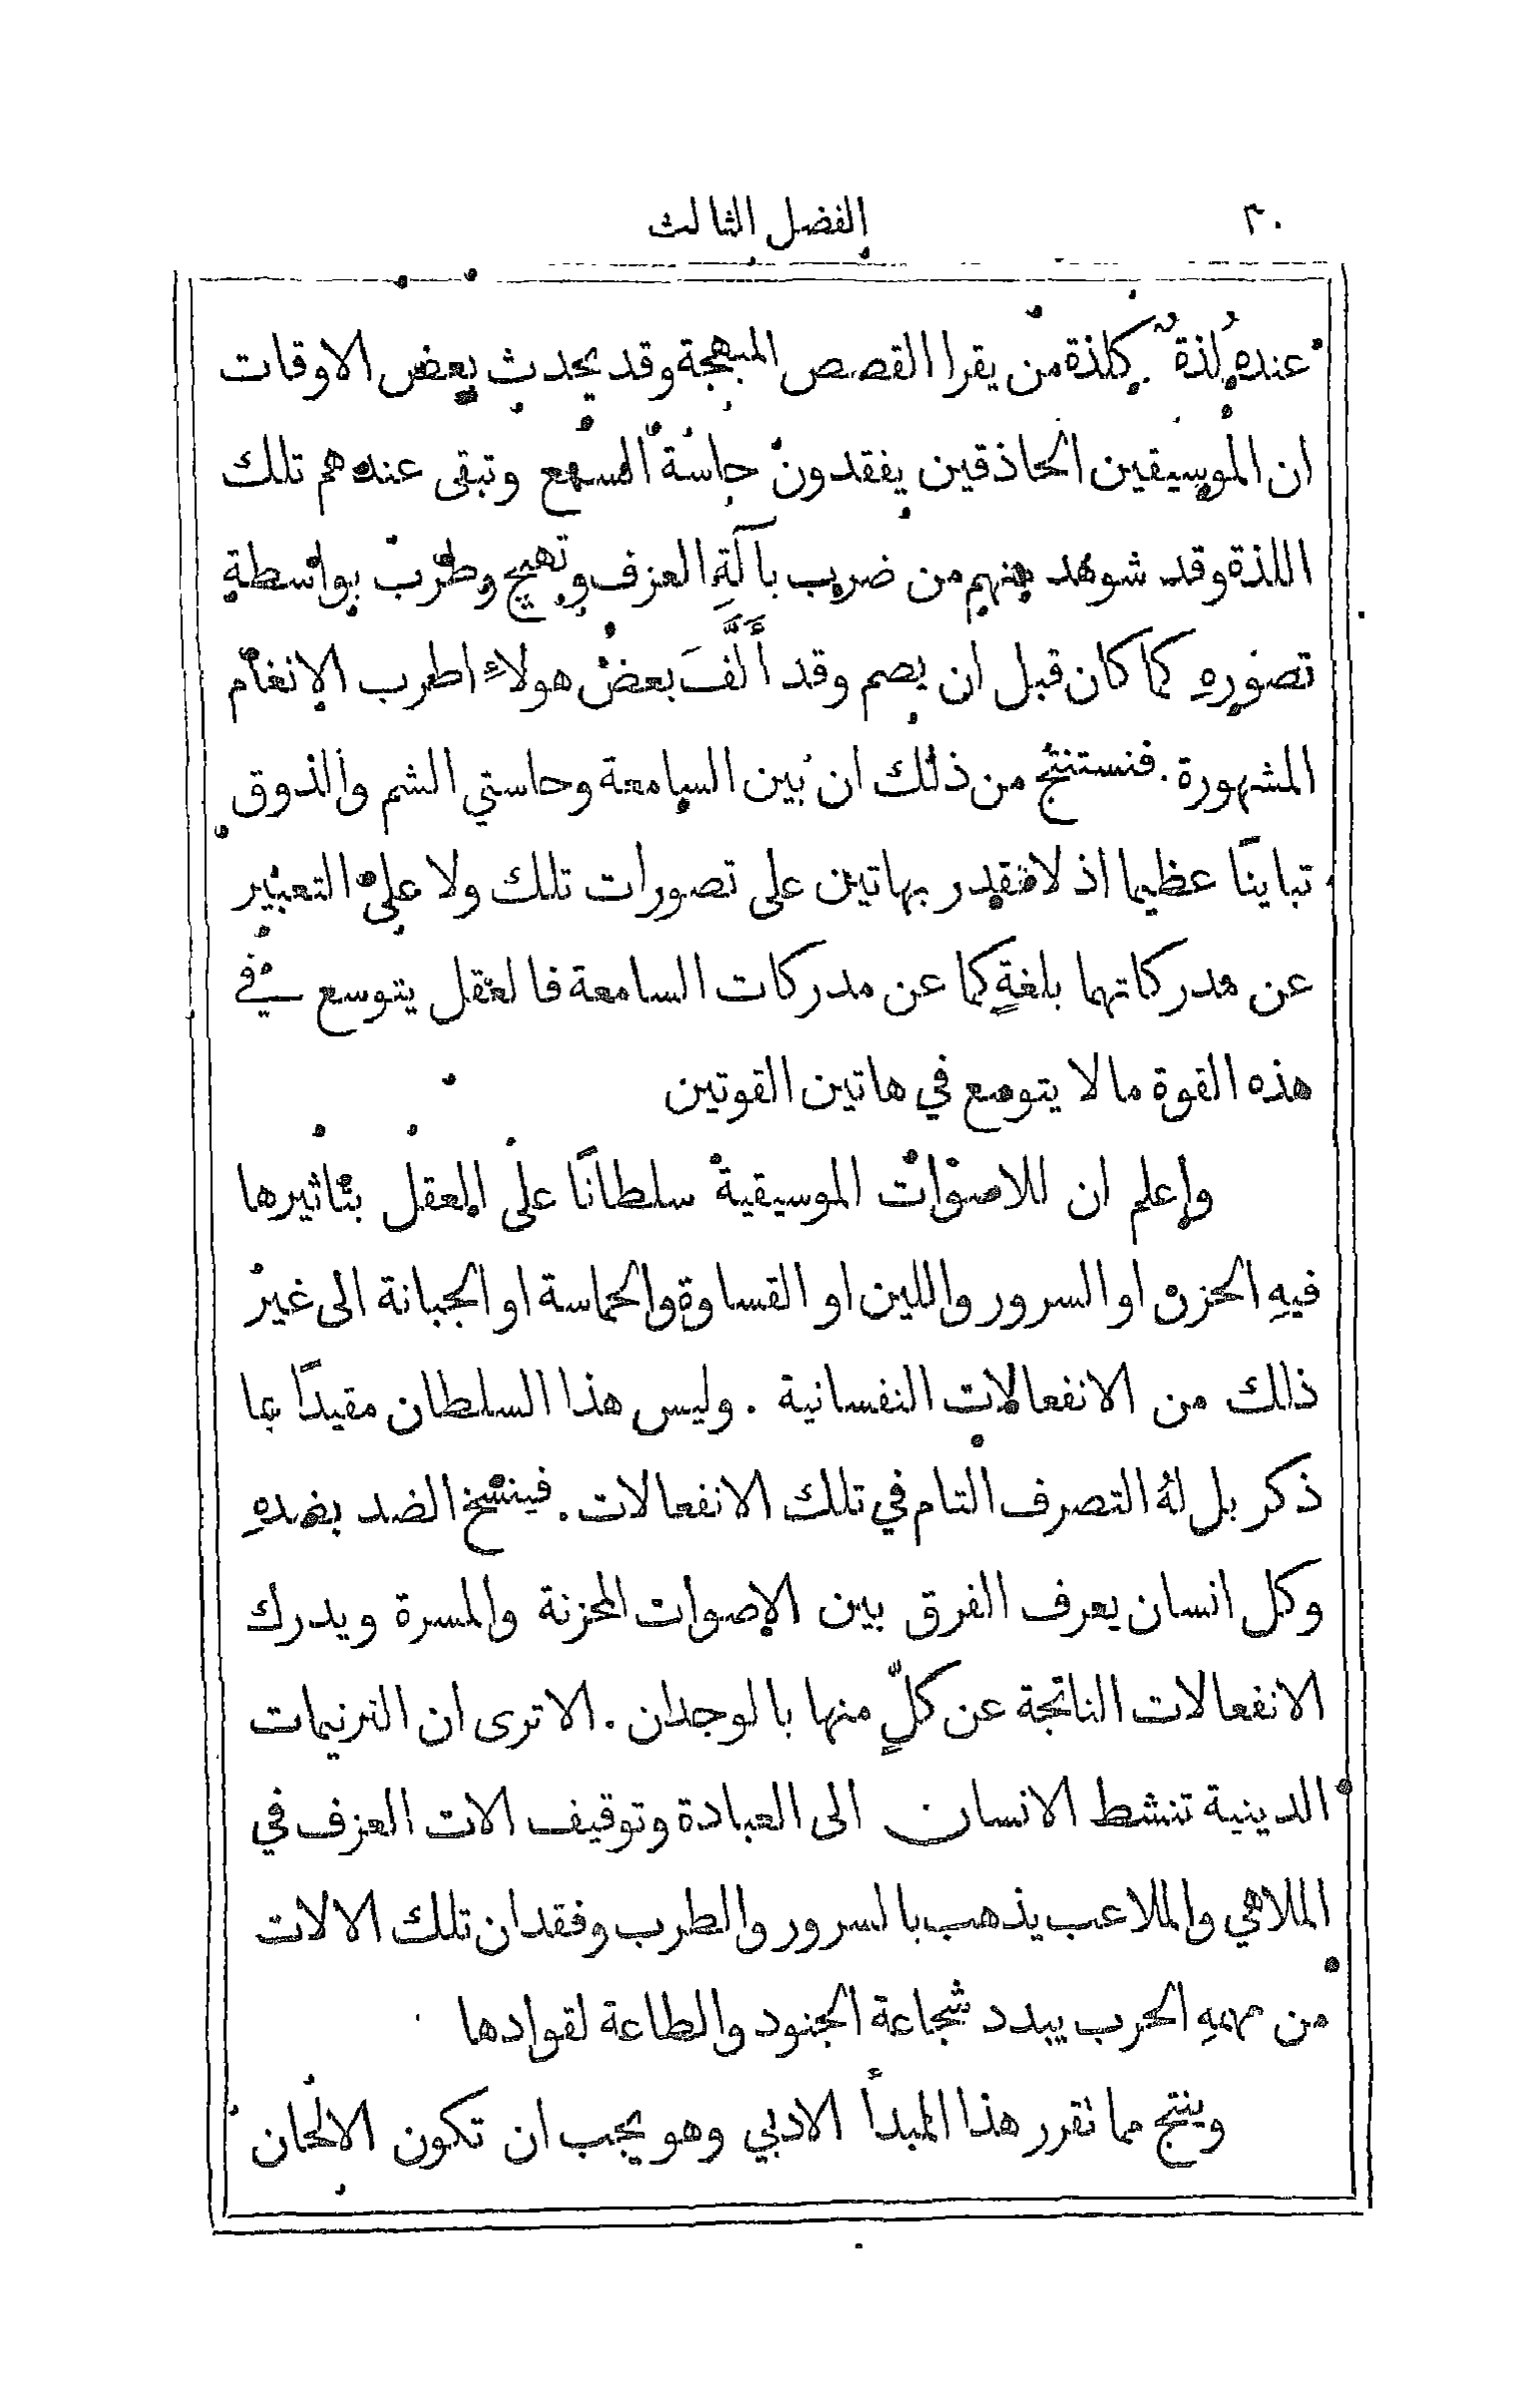 ٣٠ الفصل الثالث
عنده لذةٌ كلذة من يقرا القصص المبهجة وقد يحدث بعض الاوقات
ان الموسيقين الحاذقين يفقدون حاسة السمع وتبقى عندهم تلك
اللذة وقد شوهد منهم من ضرب بآلةِ العزف وتهيج وطرب بواسطة
تصوره كما كان قبل ان يصم وقد ألَّفَ بعض هولاء اطرب الانغام
المشهورة. فنستنتج من ذلك ان بين السامعة وحاستي الشم والذوق
تباينًا عظيما اذ لا نقدر بهاتين على تصورات تلك ولا على التعبير
عن مدركاتهما بلغةٍ كما عن مدركات السامعة فالعقل يتوسع في
هذه القوة ما لا يتوسع في هاتين القوتين
واعلم ان للاصوات الموسيقية سلطانًا على العقل بتاثيرها
فيهِ الحزن او السرور واللين او القساوة والحماسة او الجبانة الى غير
ذلك من الانفعالات النفسانية . وليس هذا السلطان مقيدًا بما
ذكر بل لهُ التصرف التام في تلك الانفعالات. فينسخ الضد بضدهِ
وكل انسان يعرف الفرق بين الاصوات المحزنة والمسرة ويدرك
الانفعالات الناتجة عن كلٍّ منها بالوجدان. الا ترى ان الترنيمات
الدينية تنشط الانسان الى العبادة وتوقيف الات العزف في
الملاهي والملاعب يذهب بالسرور والطرب وفقدان تلك الالات
من مهمهِ الحرب يبدد شجاعة الجنود والطاعة لقوادها
وينتج مما نقرر هذا المبدأ الادبي وهو يجب ان تكون الالحان